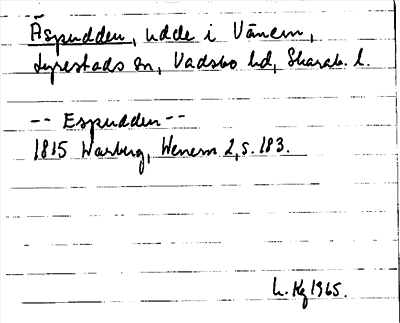 Äspudden, udde i Vänern,
Lyrestads sn, Vadsbo hd, Skarab. l.
-- Espudden --
1815 Warberg, Wenern 2, s. 183.
L. Kg 1965.